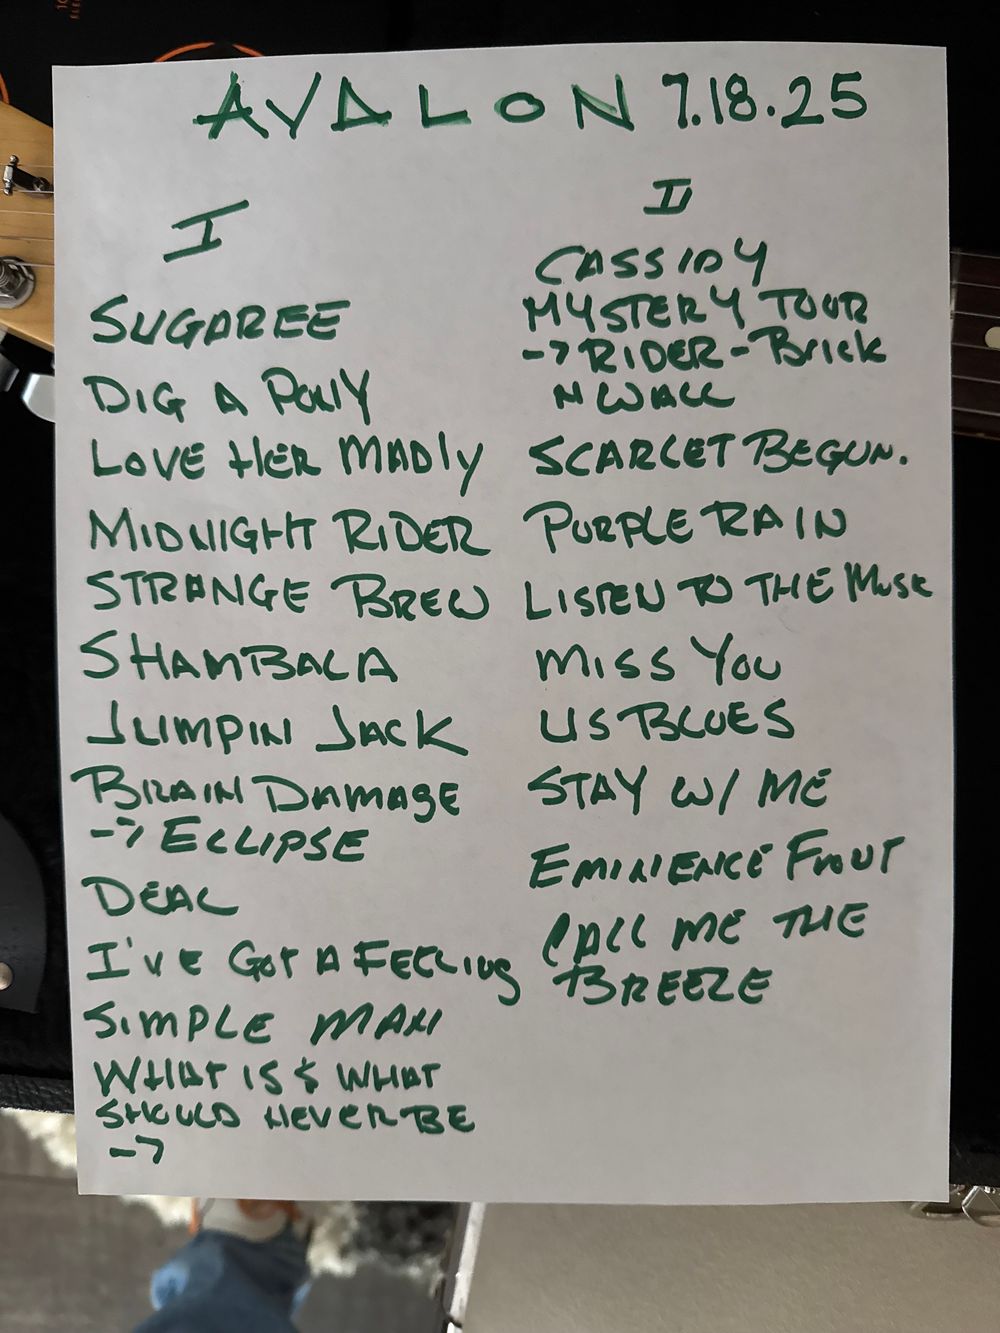 AVALON 7.18.25
I
SUGAREE
DIG A PONY
LOVE HER MADLY
MIDNIGHT RIDER
STRANGE BREW
SHAMBALA
JUMPIN JACK
BRAIN DAMAGE
-> ECLIPSE
DEAL
I'VE GOT A FEELING
SIMPLE MAN
WHAT IS & WHAT
SHOULD NEVER BE
->
II
CASSIDY
MYSTERY TOUR
-> RIDER - Brick
N WALL
SCARLET BEGUN.
PURPLE RAIN
LISTEN TO THE MUSK
MISS YOU
US BLUES
STAY W/ ME
EMINENCE FRONT
CALL ME THE
BREEZE